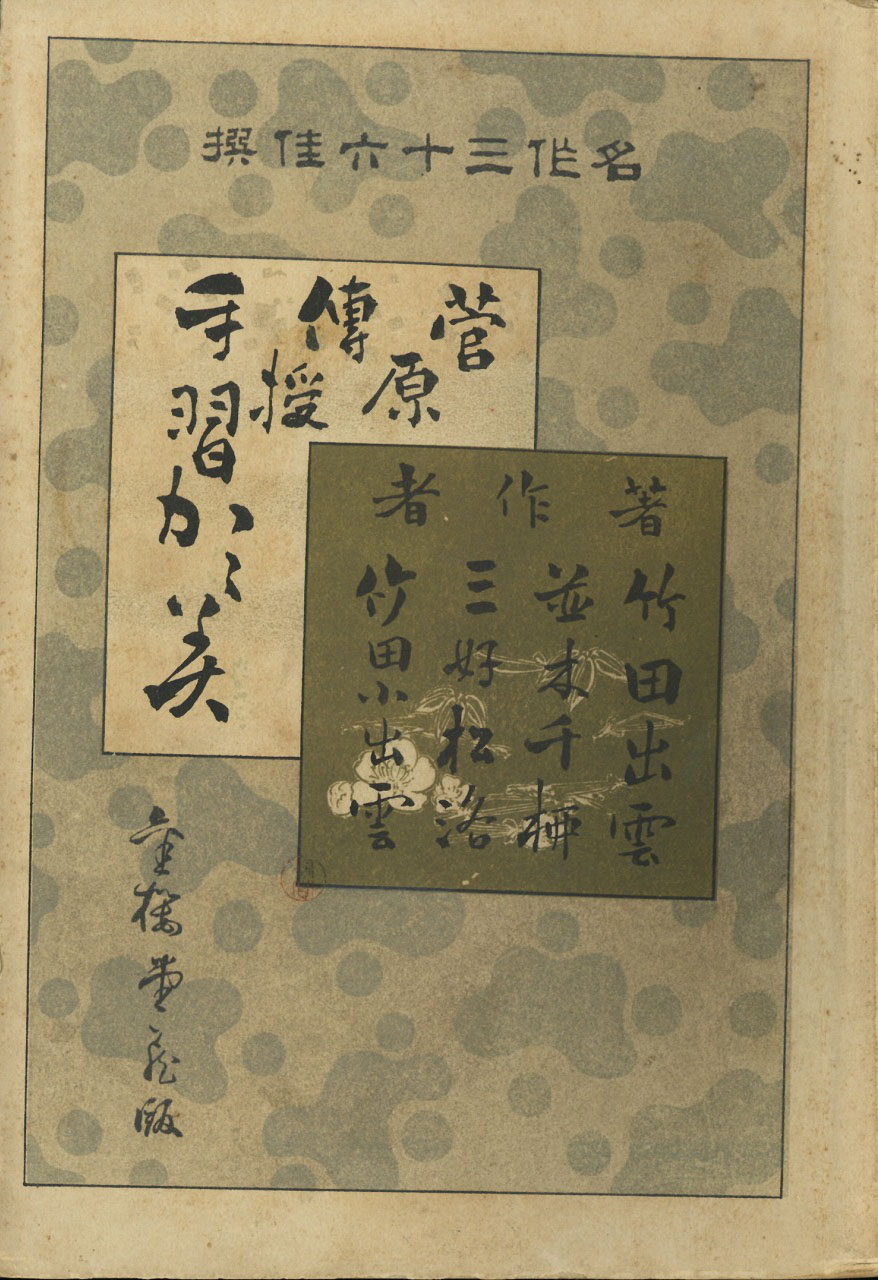 名作三十六佳撰
菅原
傳授
手習かゞ美
著作者
竹田出雲
並木千柳
三好松洛
竹田小出雲
金櫻堂蔵版